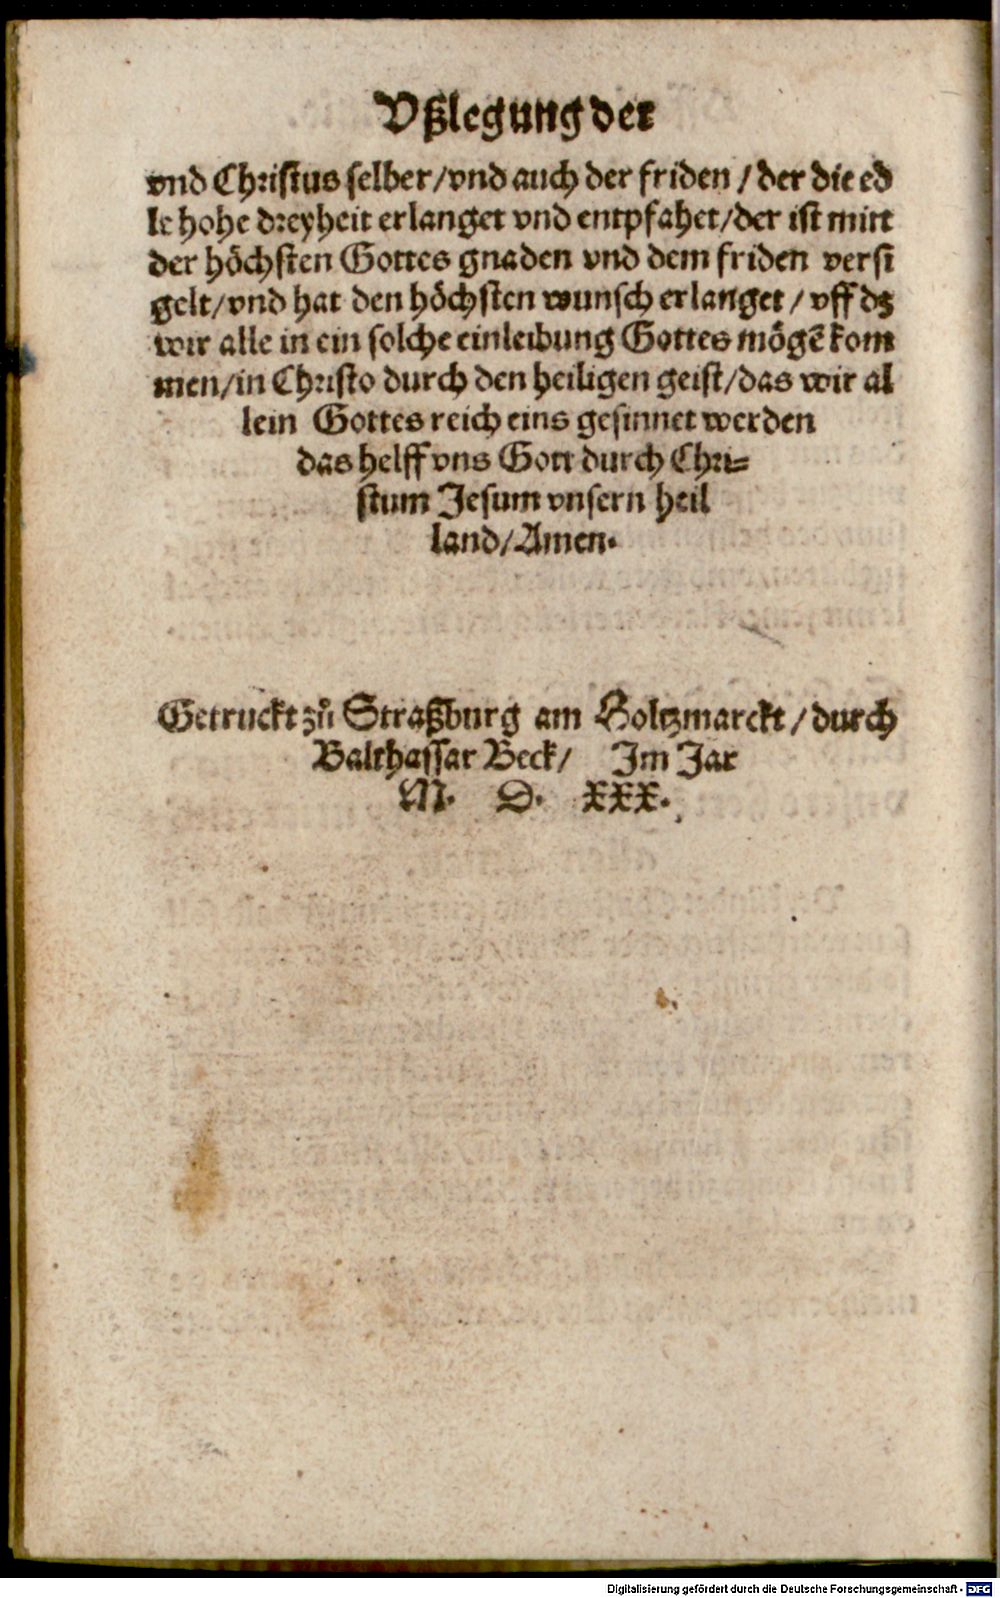 Vßlegung der
vnd Christus selber/vnd auch der friden/der die ed
le hohe dreyheit erlanget vnd entpfahet/der ist mitt
der höchsten Gottes gnaden vnd dem friden versi
gelt/vnd hat den höchsten wunsch erlanget/vff dz
wir alle in ein solche einleibung Gottes mögē kom
men/in Christo durch den heiligen geist/das wir al
lein Gottes reich eins gesinnet werden
das helff vns Gott durch Chri⸗
stum Jesum vnsern heil
land/Amen.
Getruckt zů Straßburg am Holtzmarckt/durch
Balthassar Beck/ Im Jar
M. D. XXX.
Digitalisierung gefördert durch die Deutsche Forschungsgemeinschaft - DFG